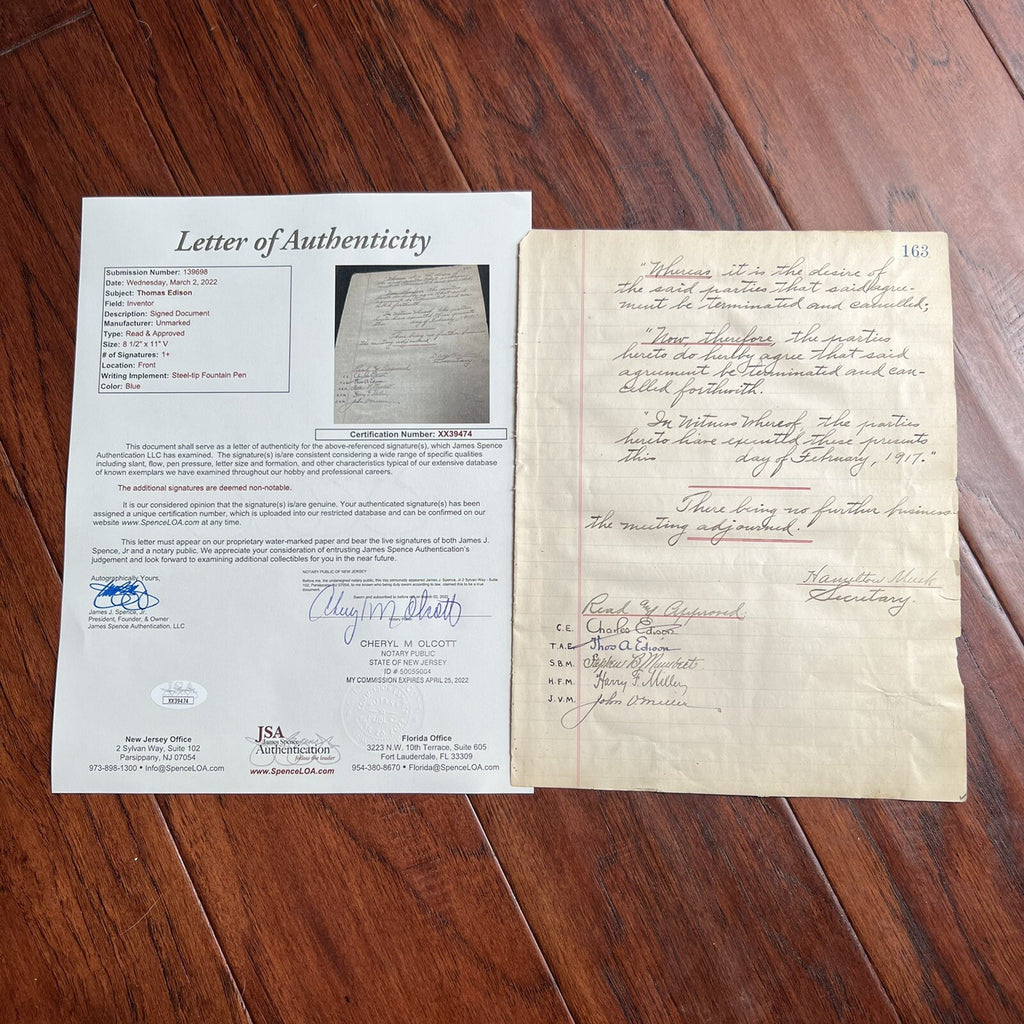 Letter of Authenticity
Submission Number: 139698
Date: Wednesday, March 2, 2022
Subject: Thomas Edison
Field: Inventor
Description: Signed Document
Manufacturer: Unmarked
Type: Read & Approved
Size: 8 1/2" x 11" V
# of Signatures: 1+
Location: Front
Writing Implement: Steel-tip Fountain Pen
Color: Blue
Certification Number: XX39474
This document shall serve as a letter of authenticity for the above-referenced signature(s), which James Spence
Authentication LLC has examined. The signature(s) is/are consistent considering a wide range of specific qualities
including slant, flow, pen pressure, letter size and formation, and other characteristics typical of our extensive database
of known exemplars we have examined throughout our hobby and professional careers.
The additional signatures are deemed non-notable.
It is our considered opinion that the signature(s) is/are genuine. Your authenticated signature(s) has been
assigned a unique certification number, which is uploaded into our restricted database and can be confirmed on our
website www.SpenceLOA.com at any time.
This letter must appear on our proprietary water-marked paper and bear the live signatures of both James J.
Spence, Jr and a notary public. We appreciate your consideration of entrusting James Spence Authentication's
judgement and look forward to examining additional collectibles for you in the near future.
Autographically Yours,
James J. Spence, Jr.
President, Founder, & Owner
James Spence Authentication, LLC
NOTARY PUBLIC OF NEW JERSEY
Before me, the undersigned notary public, this day personally appeared James J. Spence, Jr 2 Sylvan Way - Suite
102, Parsippany NJ 07054, to me known who being duly sworn according to law,
document.
Cheryl M Olcott
CHERYL M OLCOTT
NOTARY PUBLIC
STATE OF NEW JERSEY
ID # 50059004
MY COMMISSION EXPIRES APRIL 25, 2022
XX39474
New Jersey Office
2 Sylvan Way, Suite 102
Parsippany, NJ 07054
973-898-1300 • Info@SpenceLOA.com
JSA
James Spence
Authentication
follow the leader
www.SpenceLOA.com
Florida Office
3223 N.W. 10th Terrace, Suite 605
Fort Lauderdale, FL 33309
954-380-8670 • Florida@SpenceLOA.com
163
"Whereas it is the desire of
the said parties that said agree-
ment be terminated and cancelled;
"Now, therefore, the parties
hereto do herlby agree that said
agreement be terminated and can-
celled forthwith.
"In Witness Whereof, the parties
hereto have executed these presents
this day of February, 1917."
There being no further business
the meeting adjourned.
Hamilton Musk
Secretary.
Read & Approved.
C.E. Charles Edison
T.A.E. Thos A Edison
S.B.M. Stephen B Mambert
H.F.M. Harry F. Miller
J.V.M. John V Miller